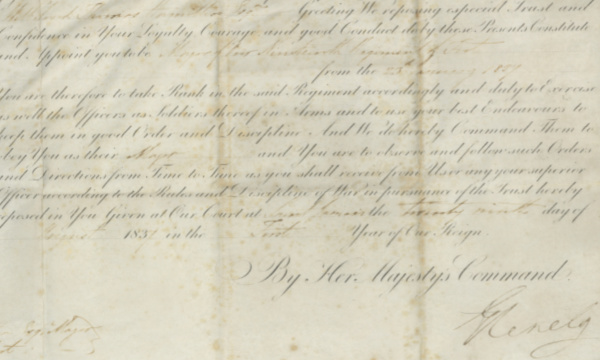 Greeting We reposing especial Trust and
Confidence in Your Loyalty Courage and good Conduct do by these Presents Constitute
and Appoint you to be
from the
You are therefore to take Rank in the said Regiment accordingly and duly to Exercise
as well the Officers as Soldiers thereof in Arms and to use your best Endeavours to
keep them in good Order and Discipline. And We do hereby Command Them to
obey You as their Major and You are to observe and follow such Orders
and Directions from Time to Time as you shall receive from Us or any your superior
Officer according to the Rules and Discipline of War in pursuance of the Trust hereby
reposed in You Given at Our Court at the twenty ninth day of
183 in the First Year of Our Reign.
By Her Majesty's Command.
Glenelg
Major